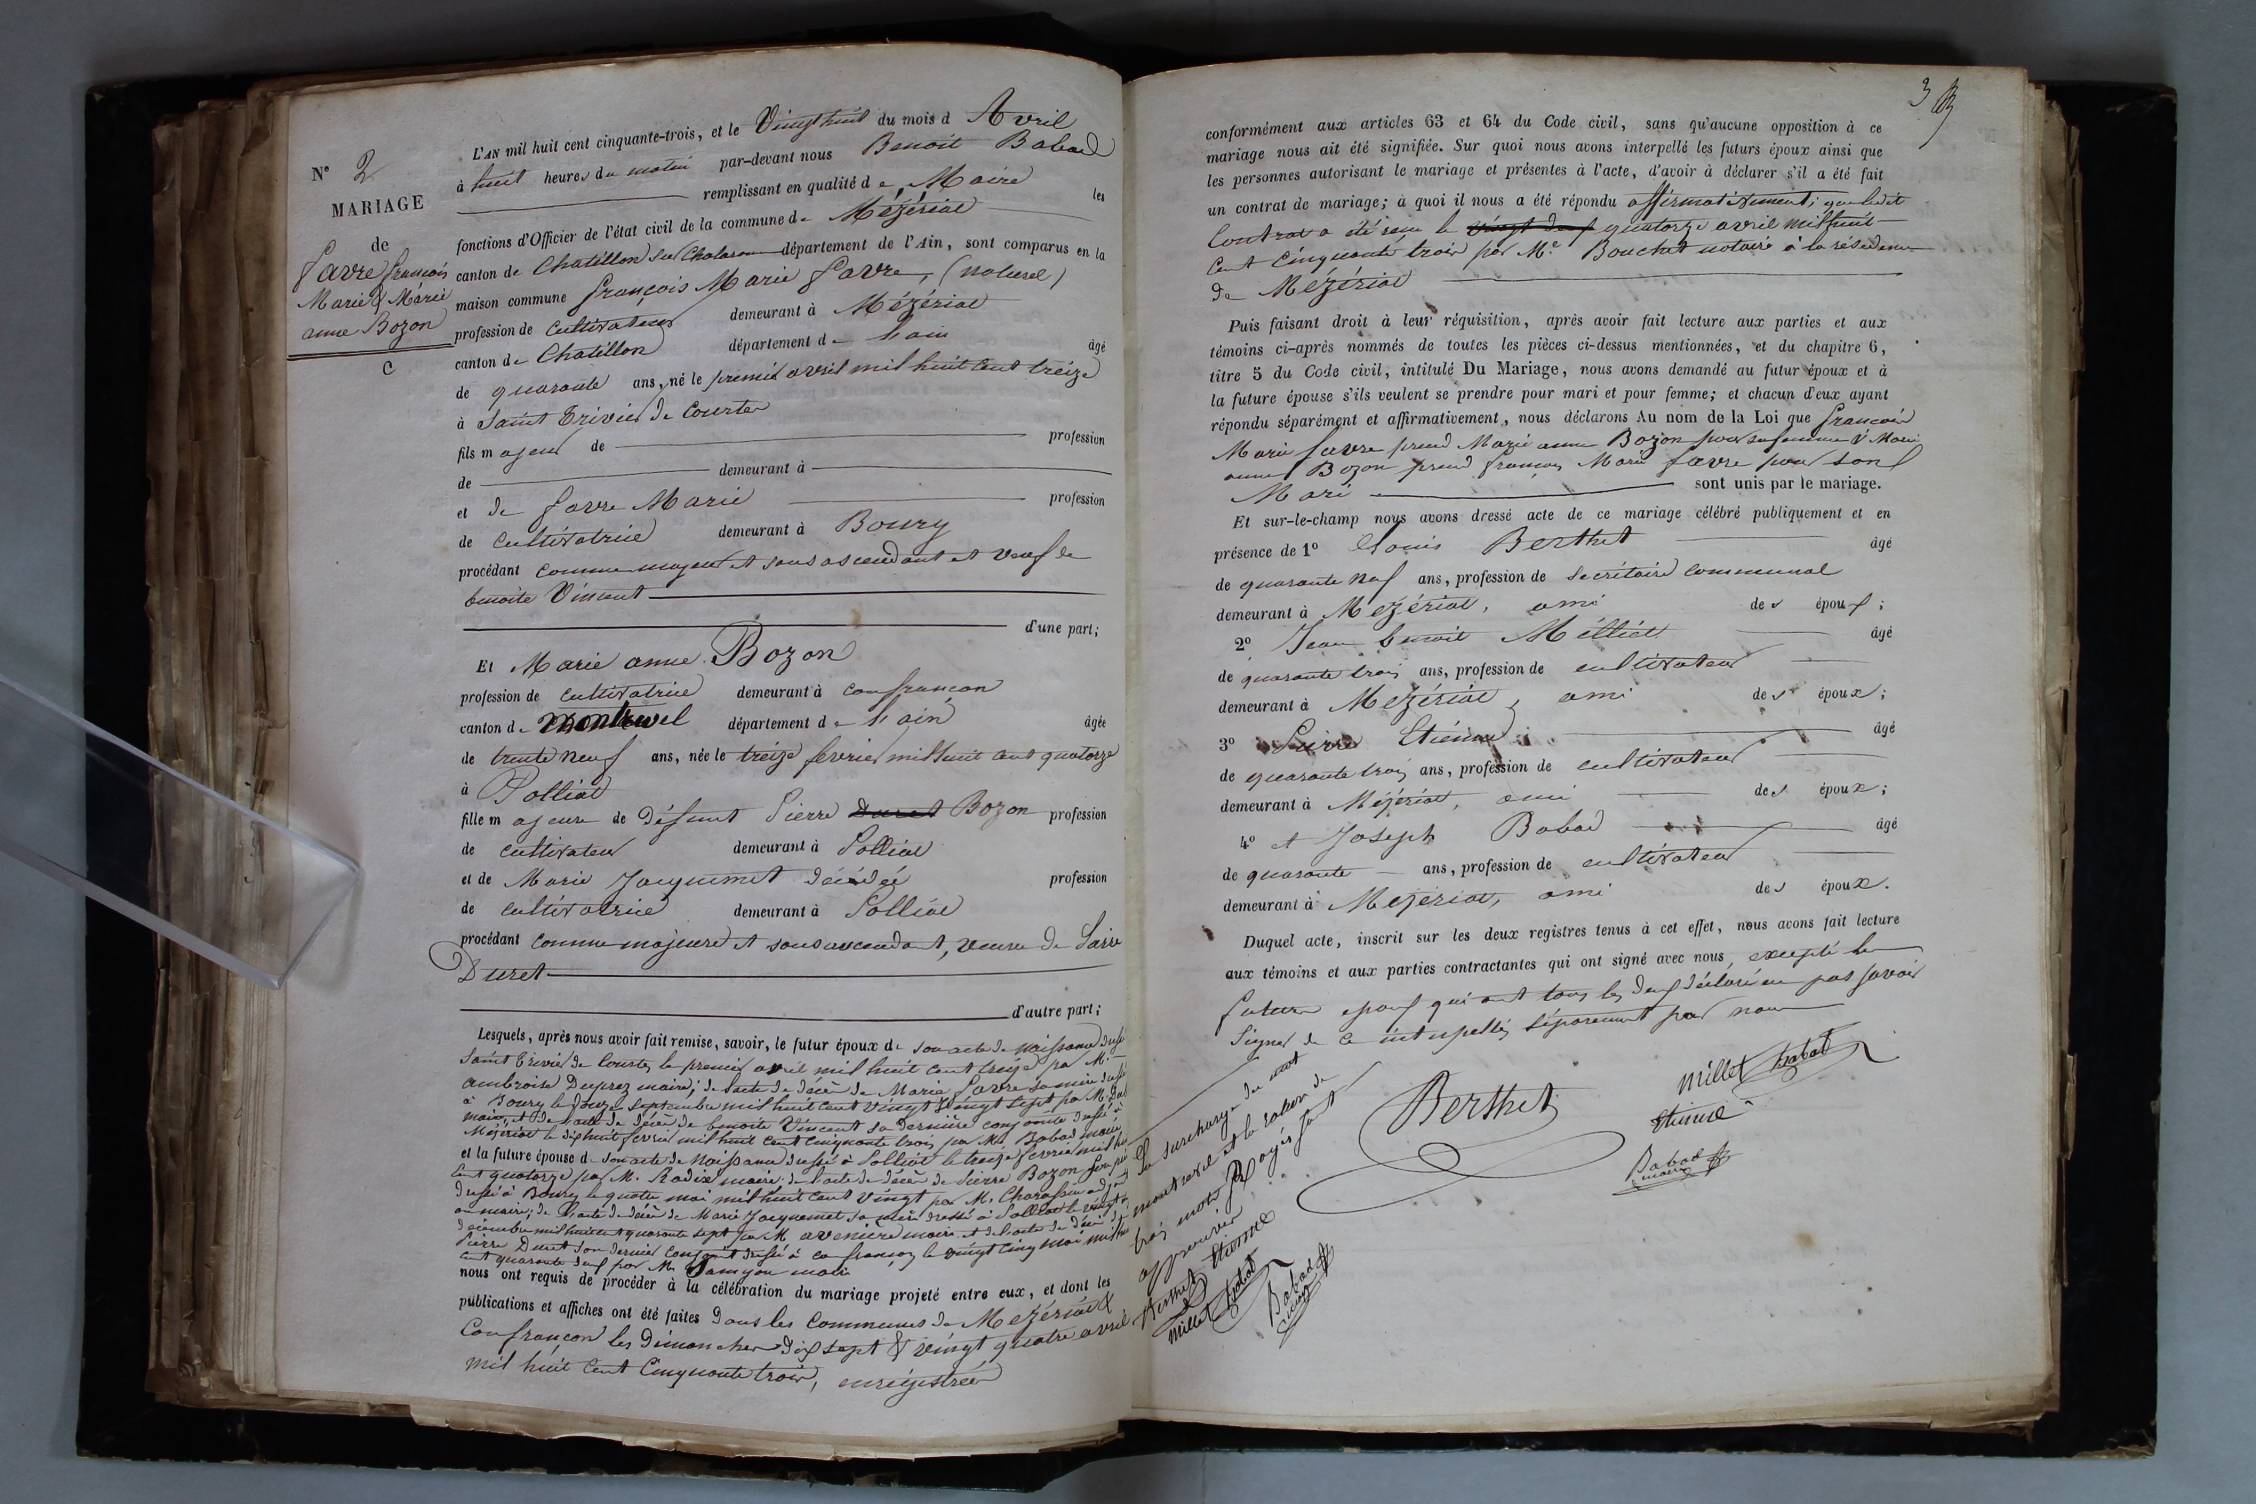 N° 2
MARIAGE
de
favre françois
Marie & Marie
anne Bozon
C
L'AN mil huit cent cinquante-trois, et le Vingt huit du mois d Avril
à huit heures du matin par-devant nous Benoit Babad
remplissant en qualité de Maire les
fonctions d'Officier de l'état civil de la commune de Mézériat
canton de Chatillon sur Chalaronne département de l'Ain, sont comparus en la
maison commune françois Marie favre, (naturel)
profession de cultivateur demeurant à Mézériat
canton de Chatillon département de l'ain âgé
de quarante ans, né le premier avril mil huit cent treize
à Saint Trivier de Courtes
fils majeur de profession
de demeurant à
et de favre Marie profession
de cultivatrice demeurant à Bourg
procédant comme majeur et sans ascendant et veuf de
benoite Vincent
d'une part;
Et Marie anne Bozon
profession de cultivatrice demeurant à confrançon
canton de montrevel département de l'ain âgée
de trente neuf ans, née le treize fevrier mil huit cent quatorze
à Polliat
fille majeure de défunt Pierre Duret Bozon profession
de cultivateur demeurant à Polliat
et de Marie Jacquemet décédée profession
de cultivatrice demeurant à Polliat
procédant comme majeure et sans ascendant, veuve de Pierre
Duret
d'autre part;
Lesquels, après nous avoir fait remise, savoir, le futur époux de son acte de naissance dressé
Saint Trivier de Courtes le premier avril mil huit cent treize par M.
ambroise Duprez maire; de l'acte de décès de Marie favre sa mère dressé
à Bourg le douze septembre mil huit cent vingt sept par M.
maire, et de l'acte de décès de benoite Vincent sa dernière conjointe dressé à
Mézériat le dix huit fevrier mil huit cent cinquante trois par M. Babad maire
et la future épouse d son acte de naissance dressé à Polliat le treize fevrier mil huit
cent quatorze par M. Radix maire; de l'acte de décès de Pierre Bozon son père
dressé à Bourg le quatre mai mil huit cent vingt par M. Charassin adjoint
au maire; de l'acte de décès de Marie Jacquemet sa mère dressé à Polliat le vingt
décembre mil huit cent quarante sept par M. avenière maire et de l'acte de décès de
Pierre Duret son dernier conjoint dressé à confrançon le vingt cinq mai mil huit
cent quarante par M. maire
nous ont requis de procéder à la célébration du mariage projeté entre eux, et dont les
publications et affiches ont été faites dans les communes de Mézériat &
Confrançon les dimanches dix sept & vingt quatre avril
mil huit cent cinquante trois, enregistrée
3
conformément aux articles 63 et 64 du Code civil, sans qu'aucune opposition à ce
mariage nous ait été signifiée. Sur quoi nous avons interpellé les futurs époux ainsi que
les personnes autorisant le mariage et présentes à l'acte, d'avoir à déclarer s'il a été fait
un contrat de mariage; à quoi il nous a été répondu affirmativement; que ledit
contrat a été reçu le quatorze avril mil huit
cent cinquante trois par Me. Bouchet notaire à la résidence
de Mézériat
Puis faisant droit à leur réquisition, après avoir fait lecture aux parties et aux
témoins ci-après nommés de toutes les pièces ci-dessus mentionnées, et du chapitre 6,
titre 5 du Code civil, intitulé Du Mariage, nous avons demandé au futur époux et à
la future épouse s'ils veulent se prendre pour mari et pour femme; et chacun d'eux ayant
répondu séparément et affirmativement, nous déclarons Au nom de la Loi que françois
Marie favre prend Marie anne Bozon pour sa femme & Marie
anne Bozon prend françois Marie favre pour son
Mari sont unis par le mariage.
Et sur-le-champ nous avons dressé acte de ce mariage célébré publiquement et en
présence de 1° Louis Berthet âgé
de quarante neuf ans, profession de secrétaire communal
demeurant à Mézériat, ami des époux;
2° Jean benoit Milliet âgé
de quarante trois ans, profession de cultivateur
demeurant à Mezériat, ami des époux;
3° Pierre Etienne âgé
de quarante trois ans, profession de cultivateur
demeurant à Mézériat, ami des époux;
4° et Joseph Babad âgé
de quarante ans, profession de cultivateur
demeurant à Mezériat, ami des époux.
Duquel acte, inscrit sur les deux registres tenus à cet effet, nous avons fait lecture
aux témoins et aux parties contractantes qui ont signé avec nous, excepté les
futurs époux qui ont tous les deux déclaré ne pas savoir
signer de ce interpellés séparément par nous
La surcharge du mot
montrevel et la rature de
trois mots Rayés sont
approuvés
Berthet Etienne
Millet Babad
Babad
maire
Berthet
Millet Babad
Etienne
Babad
maire